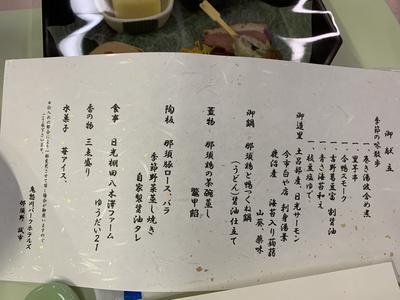 御献立
季節の味散歩
一、里芋串
一、合鴨スモーク
一、吉野葛豆富 割醤油
一、枝豆塩ゆで
御造里 土呂部産、日光サーモン
今市白や店 刺身湯葉
鹿沼産 海苔入り蒟蒻
山葵、薬味
御鍋 那須鶏と鴨つくね鍋
(うどん)醤油仕立て
蓋物 那須鶏の茶碗蒸し
鼈甲餡
陶板 那須豚ロース、バラ
季節野菜蒸し焼き
自家製醤油タレ
食事 日光棚田 八木澤ファーム
ゆうだい21
香の物 三点盛り
水菓子 苺アイス、
鬼怒川パークホテルズ